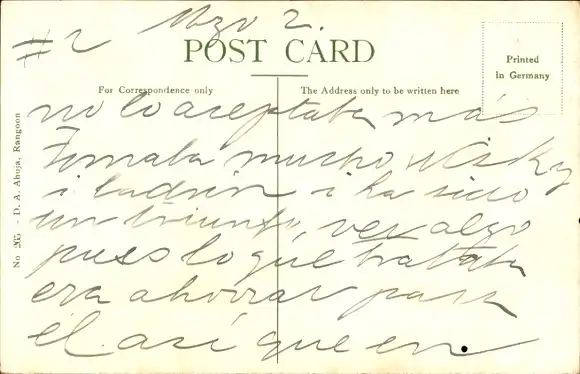 #2 Mzo 2.
POST CARD
Printed
in Germany
For Correspondence only
The Address only to be written here
No 265 - D. A. Ahuja, Rangoon
no lo aceptaba más
Tomaba mucho wisky
i ladrón i ha sido
un triunfo, ver algo
pues lo que trataba
era ahorrar para
él así que en